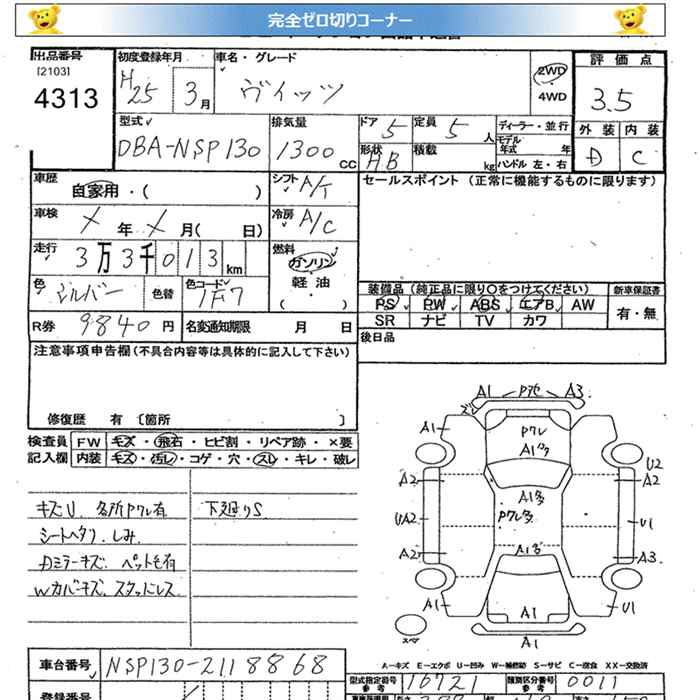 完全ゼロ切りコーナー
出品番号 初度登録年月 車名・グレード 評価点
[2103] 4313 H25 3月 ヴィッツ 2WD 4WD 3.5
型式 排気量 ドア 5 定員 5人 ディーラー・並行 外装 内装
DBA-NSP130 1300cc 形状 HB 積載 kg モデル年式 年 ハンドル 左・右 D C
車歴 自家用・( ) シフト A/T セールスポイント (正常に機能するものに限ります)
車検 X年X月( 日) 冷房 A/C
走行 3万3千013km 燃料 ガソリン
色 シルバー 色替 色コード 1F7 軽油 ( )
装備品 (純正品に限り○をつけてください) 新車保証書
PS PW ABS エアB AW 有・無
SR ナビ TV カワ
R券 9840円 名変通知期限 月 日 後日品
注意事項申告欄(不具合内容等は具体的に記入して下さい)
修復歴 有 〔箇所 〕
検査員 FW キズ・飛石・ヒビ割・リペア跡・×要
記入欄 内装 キズ・汚レ・コゲ・穴・スレ・キレ・破レ
キズU. 各所Pワレ有 下廻りS
シートヘタリ. しみ.
Dミラーキズ. ペット毛有
Wカバーキズ. スタッドレス
A1 A3
A1 Pワレ
A1
U2
A2 A1多 A2
UA2 Pワレ多 U1
A2 A1多 A3
A1 A1 U1
スペア A1
A-キズ E-エクボ U-凹み W-補修跡 S-サビ C-腐食 XX-交換済
車台番号 NSP130-2118868 型式指定番号 参考 16721 類別区分番号 参考 0011
登録番号